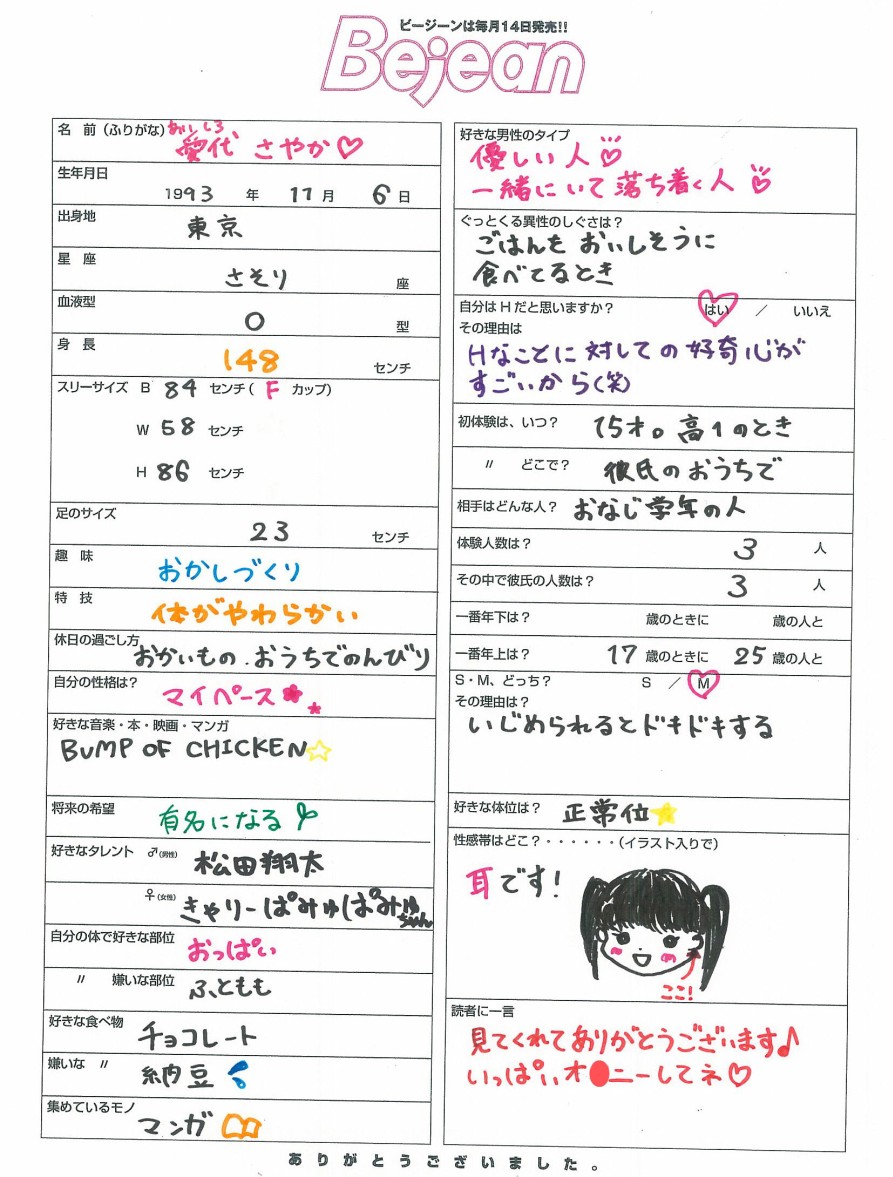 ビージーンは毎月14日発売!!
Bejean
名 前(ふりがな) あいしろ
愛代 さやか♡
生年月日
1993 年 11 月 6 日
出身地
東京
星 座
さそり 座
血液型
O 型
身 長
148 センチ
スリーサイズ B 84 センチ( F カップ)
W 58 センチ
H 86 センチ
足のサイズ
23 センチ
趣 味
おかしづくり
特 技
体がやわらかい
休日の過ごし方
おかいもの．おうちでのんびり
自分の性格は?
マイペース
好きな音楽・本・映画・マンガ
BUMP OF CHICKEN☆
将来の希望
有名になる
好きなタレント ♂(男性) 松田翔太
♀(女性) きゃりーぱみゅぱみゅちゃん
自分の体で好きな部位
おっぱい
〃 嫌いな部位
ふともも
好きな食べ物
チョコレート
嫌いな 〃
納豆
集めているモノ
マンガ
好きな男性のタイプ
優しい人♡
一緒にいて落ち着く人♡
ぐっとくる異性のしぐさは?
ごはんを おいしそうに
食べてるとき
自分はHだと思いますか? はい / いいえ
その理由は
Hなことに対しての好奇心が
すごいから(笑)
S・M、どっち? S / M
その理由は?
いじめられるとドキドキする
好きな体位は? 正常位★
性感帯はどこ?・・・・・・(イラスト入りで)
耳です!
ここ!
読者に一言
見てくれてありがとうございます♪
いっぱいオ●ニーしてネ♡
ありがとうございました。